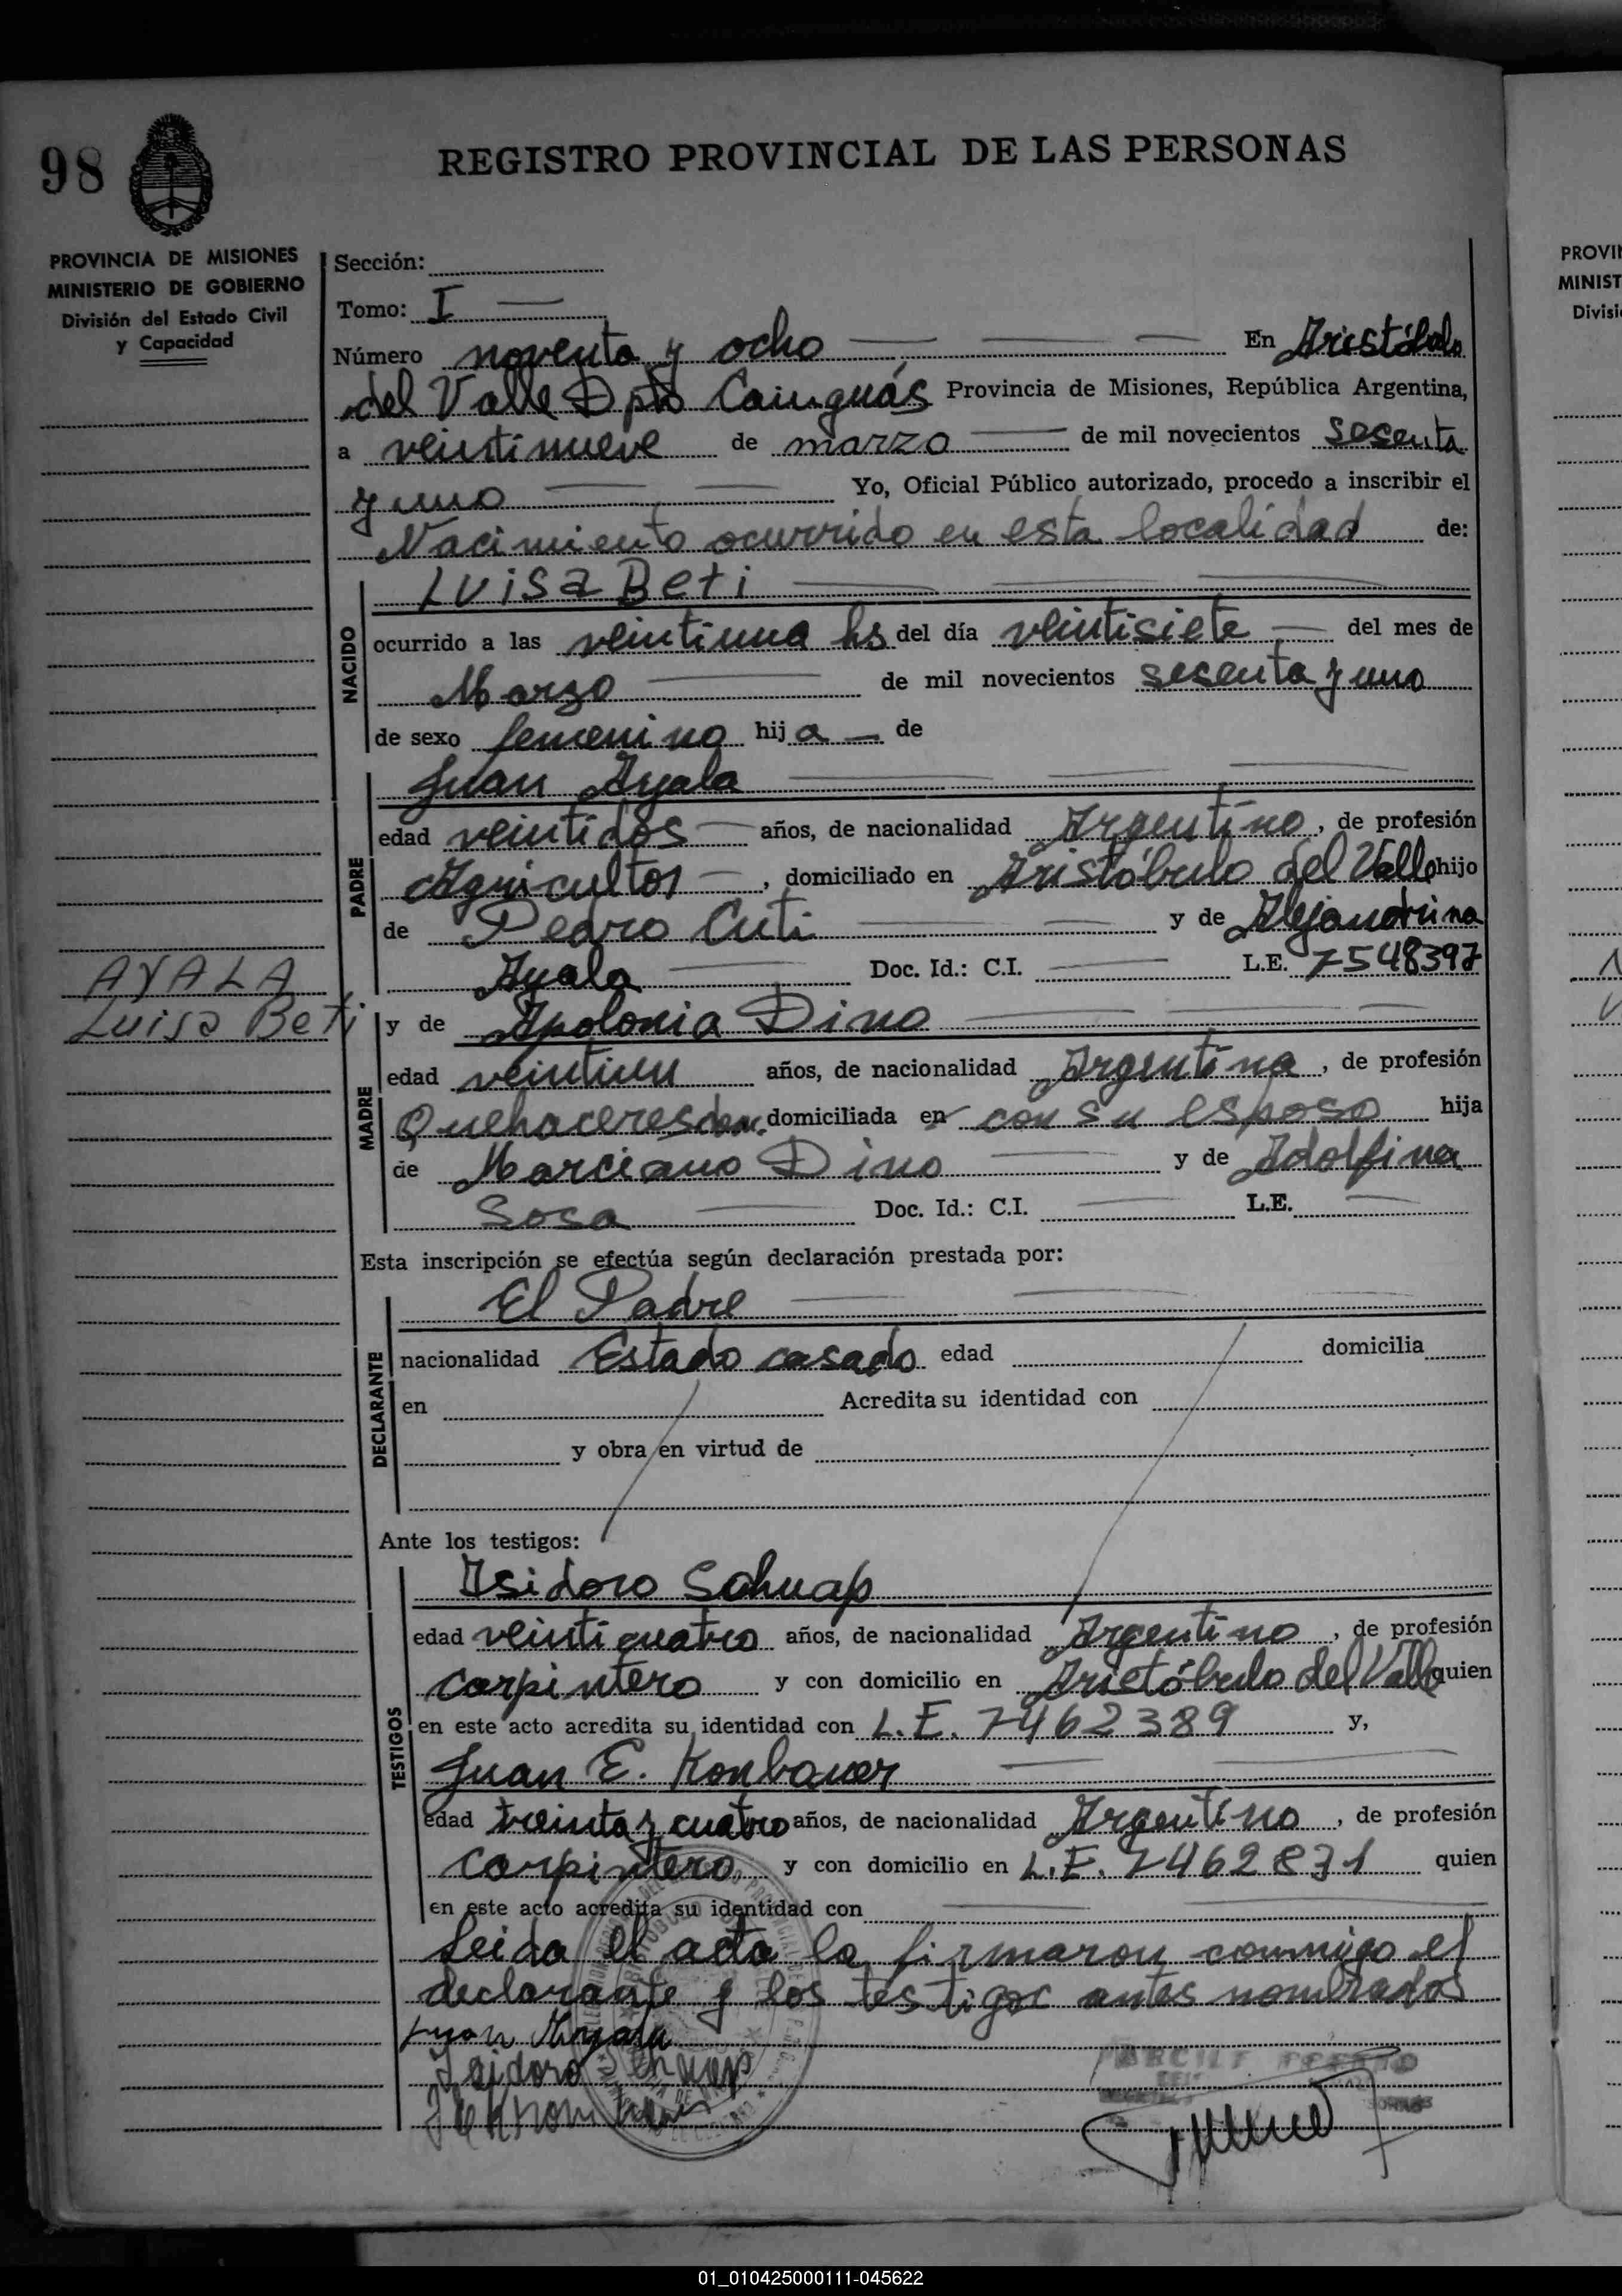 98
REGISTRO PROVINCIAL DE LAS PERSONAS
PROVINCIA DE MISIONES
MINISTERIO DE GOBIERNO
División del Estado Civil
y Capacidad
Sección:
Tomo: I
Número noventa y ocho En Aristóbulo
del Valle Dpto Cainguás Provincia de Misiones, República Argentina,
a veintinueve de marzo de mil novecientos sesenta
y uno Yo, Oficial Público autorizado, procedo a inscribir el
Nacimiento ocurrido en esta localidad de:
Luisa Beti
NACIDO
ocurrido a las veintiuna hs del día veintisiete del mes de
Marzo de mil novecientos sesenta y uno
de sexo femenino hija de
Juan Ayala
PADRE
edad veintidos años, de nacionalidad Argentino, de profesión
Agricultor, domiciliado en Aristóbulo del Valle hijo
de Pedro Cuti y de Alejandrina
Ayala Doc. Id.: C.I. L.E. 7548397
AYALA
Luisa Beti
y de Apolonia Dino
MADRE
edad veintiun años, de nacionalidad Argentina, de profesión
Quehaceres dom. domiciliada en con su esposo hija
de Marciano Dino y de Adolfina
Sosa Doc. Id.: C.I. L.E.
Esta inscripción se efectúa según declaración prestada por:
El Padre
DECLARANTE
nacionalidad Estado casado edad domicilia
en Acredita su identidad con
y obra en virtud de
Ante los testigos:
Isidoro Schuap
TESTIGOS
edad veinticuatro años, de nacionalidad Argentino, de profesión
carpintero y con domicilio en Aristóbulo del Valle quien
en este acto acredita su identidad con L.E. 7462389 y,
Juan E. Konbauer
edad treinta y cuatro años, de nacionalidad Argentino, de profesión
Carpintero y con domicilio en L.E. 7462871 quien
en este acto acredita su identidad con
Leida el acta la firmaron conmigo el
declarante y los testigos antes nombrados
Juan Ayala
Isidoro Schuap
PROVIN
MINIST
Divisi
01_010425000111-045622